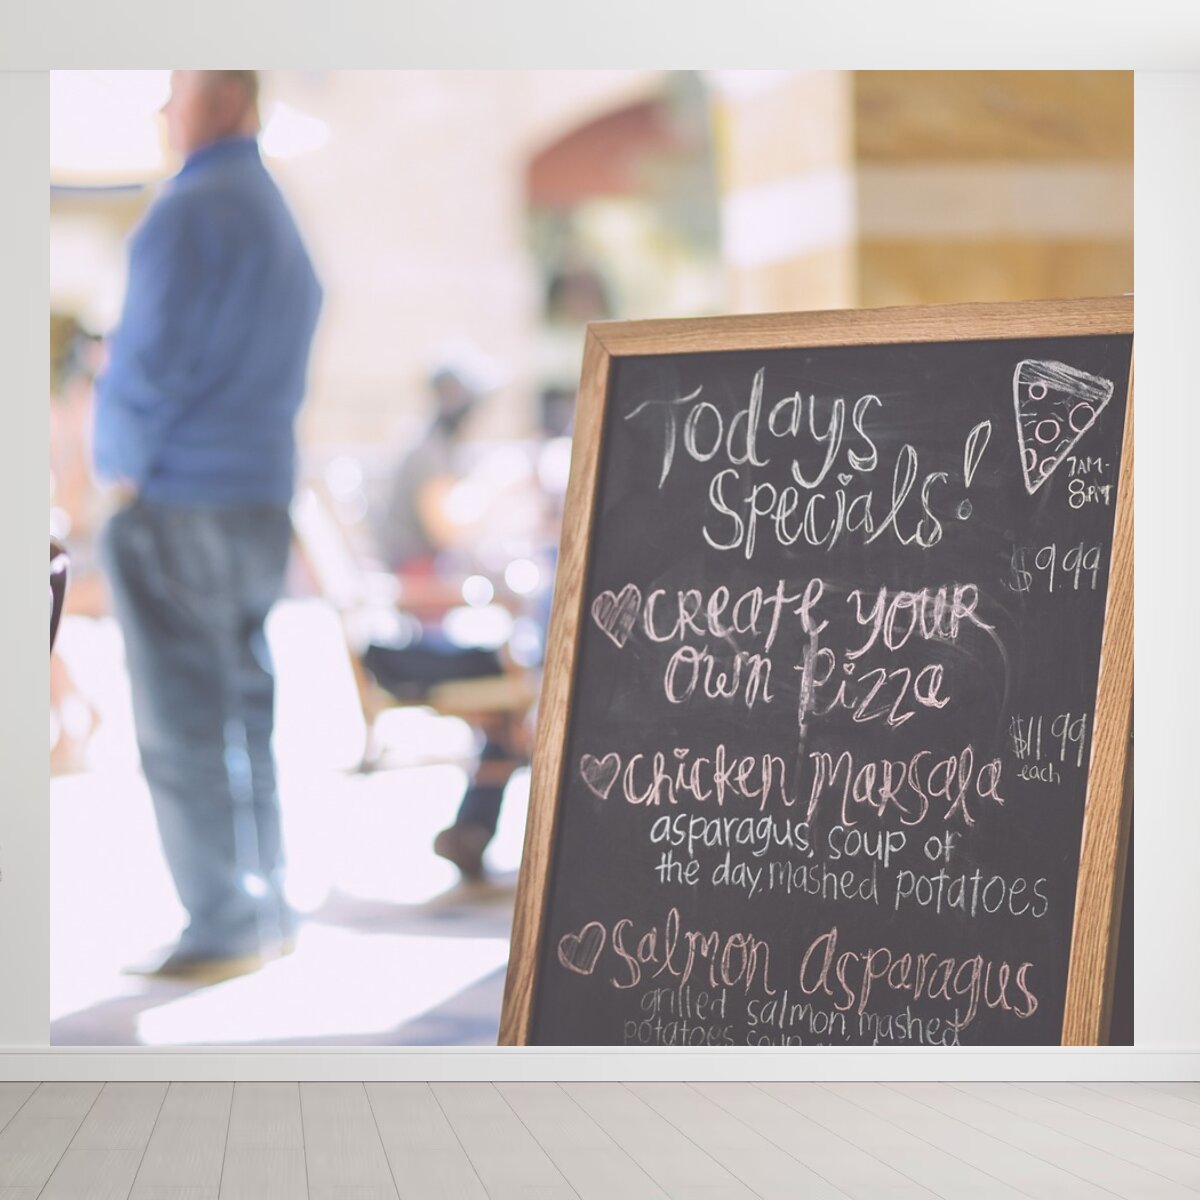 Todays
Specials!
7AM-
8PM
$9.99
Create Your
Own Pizza
$11.99
each
Chicken Marsala
asparagus, soup of
the day, mashed potatoes
Salmon Asparagus
grilled salmon, mashed
potatoes soup